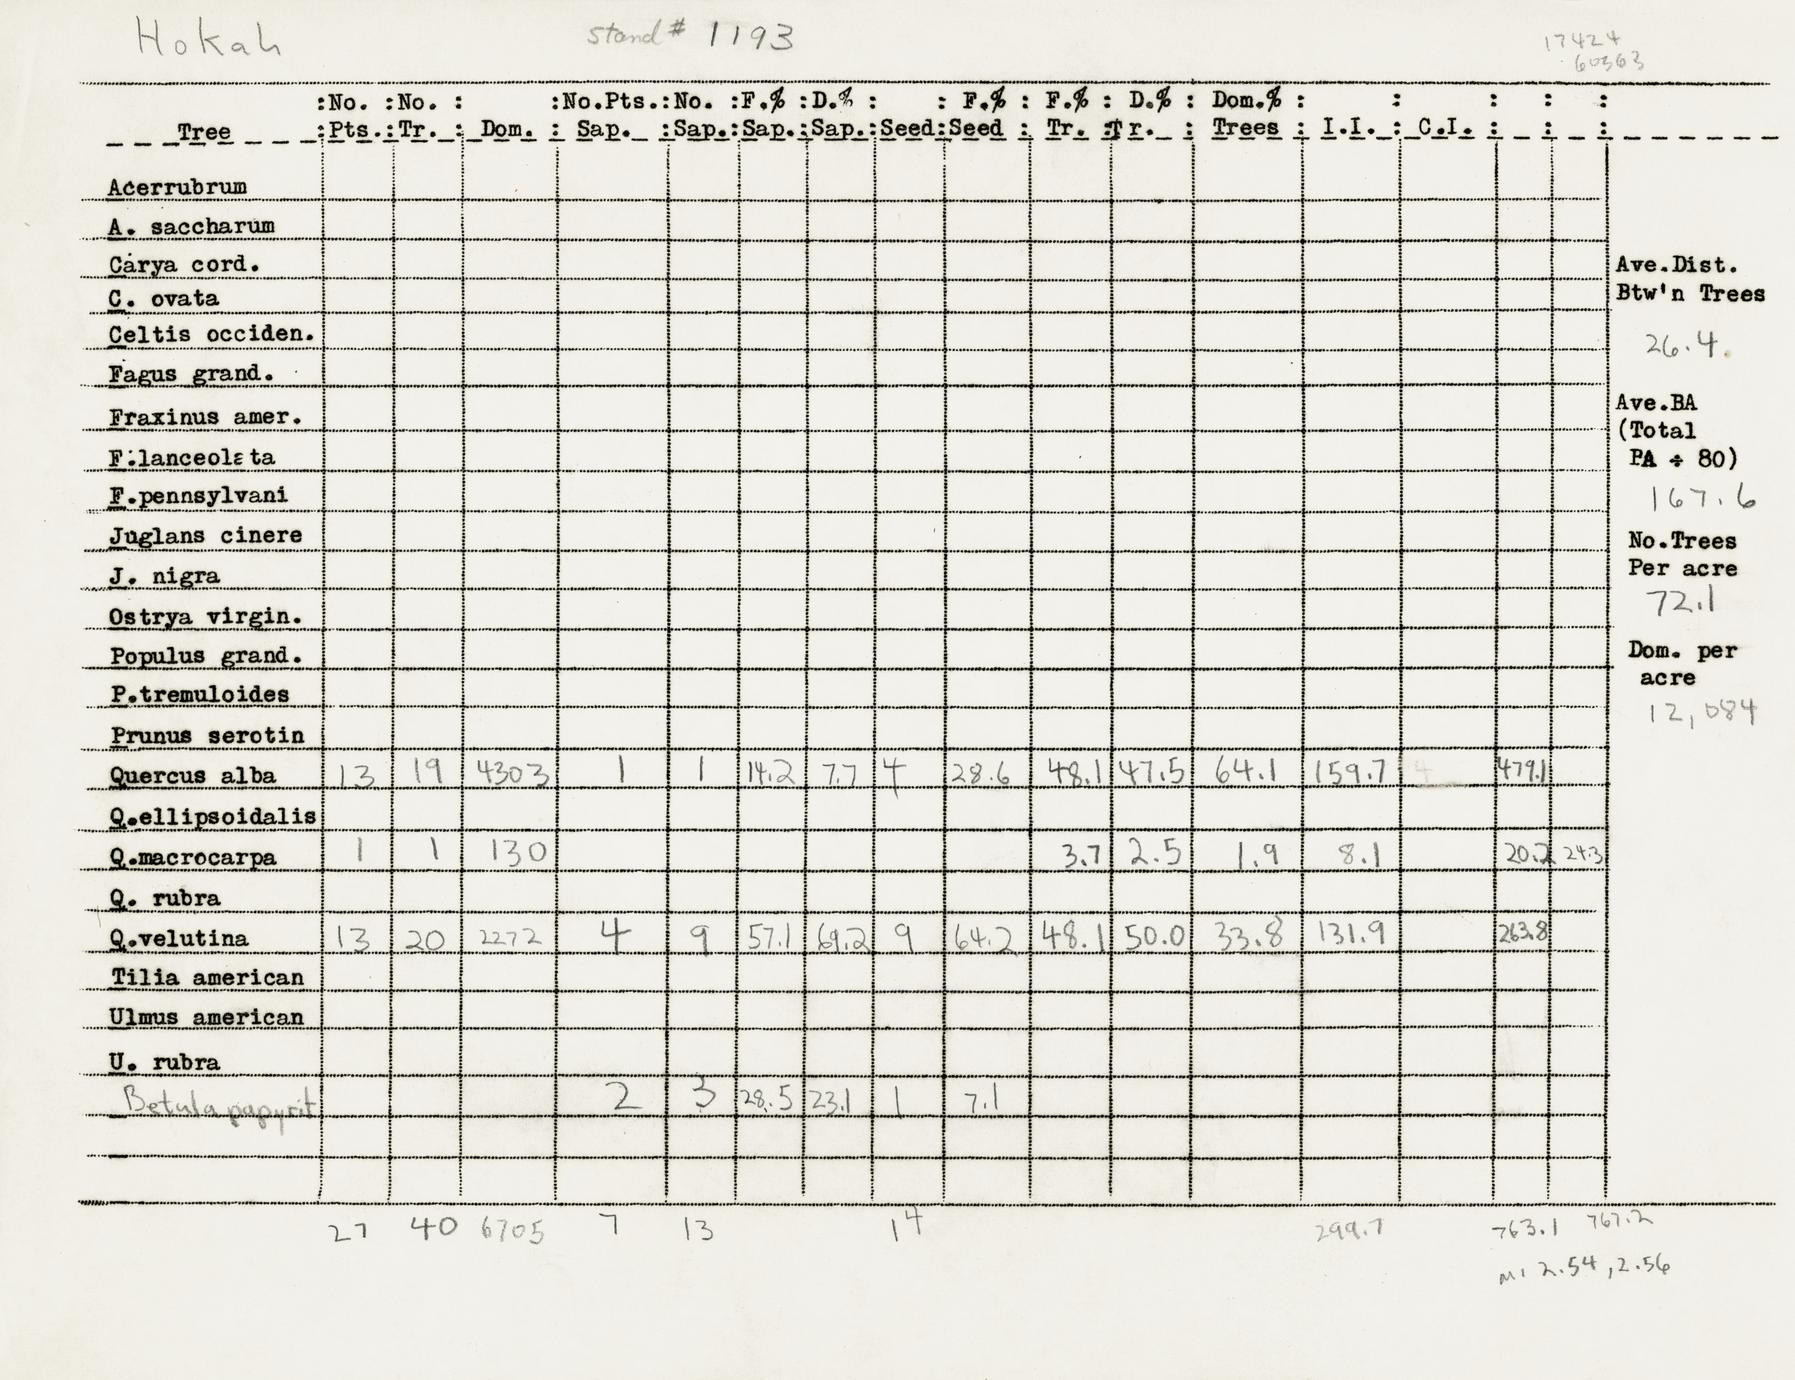 Hokah stand # 1193 17424
60363
:No. :No. : :No.Pts.:No. :F.% :D.% : : F.% : F.% : D.% : Dom.% : : : : :
Tree :Pts.:Tr. : Dom. : Sap. :Sap.:Sap.:Sap.:Seed:Seed : Tr. :Tr. : Trees : I.I. : C.I. : : :
Acerrubrum
A. saccharum
Carya cord. Ave.Dist.
C. ovata Btw'n Trees
Celtis occiden. 26.4
Fagus grand.
Fraxinus amer. Ave.BA
(Total
F.lanceolata PA ÷ 80)
F.pennsylvani 167.6
Juglans cinere No.Trees
J. nigra Per acre
Ostrya virgin. 72.1
Populus grand. Dom. per
P.tremuloides acre
Prunus serotin 12,084
Quercus alba 13 19 4303 1 1 14.2 7.7 4 28.6 48.1 47.5 64.1 159.7 479.1
Q.ellipsoidalis
Q.macrocarpa 1 1 130 3.7 2.5 1.9 8.1 20.2 24.3
Q. rubra
Q.velutina 13 20 2272 4 9 57.1 69.2 9 64.2 48.1 50.0 33.8 131.9 263.8
Tilia american
Ulmus american
U. rubra
Betula papyrif 2 3 28.5 23.1 1 7.1
27 40 6705 7 13 14 299.7 763.1 767.2
2.54, 2.56